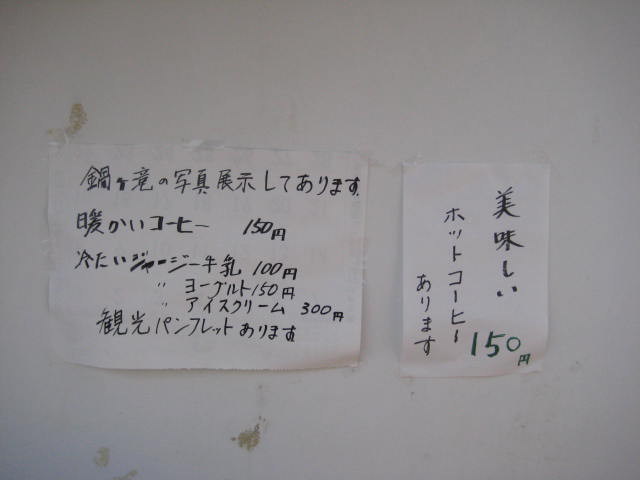 鍋ヶ滝の写真展示してあります
暖かいコーヒー 150円
冷たいジャージー牛乳 100円
〃 ヨーグルト150円
〃 アイスクリーム 300円
観光パンフレットあります
美味しい
ホットコーヒー
あります
150円